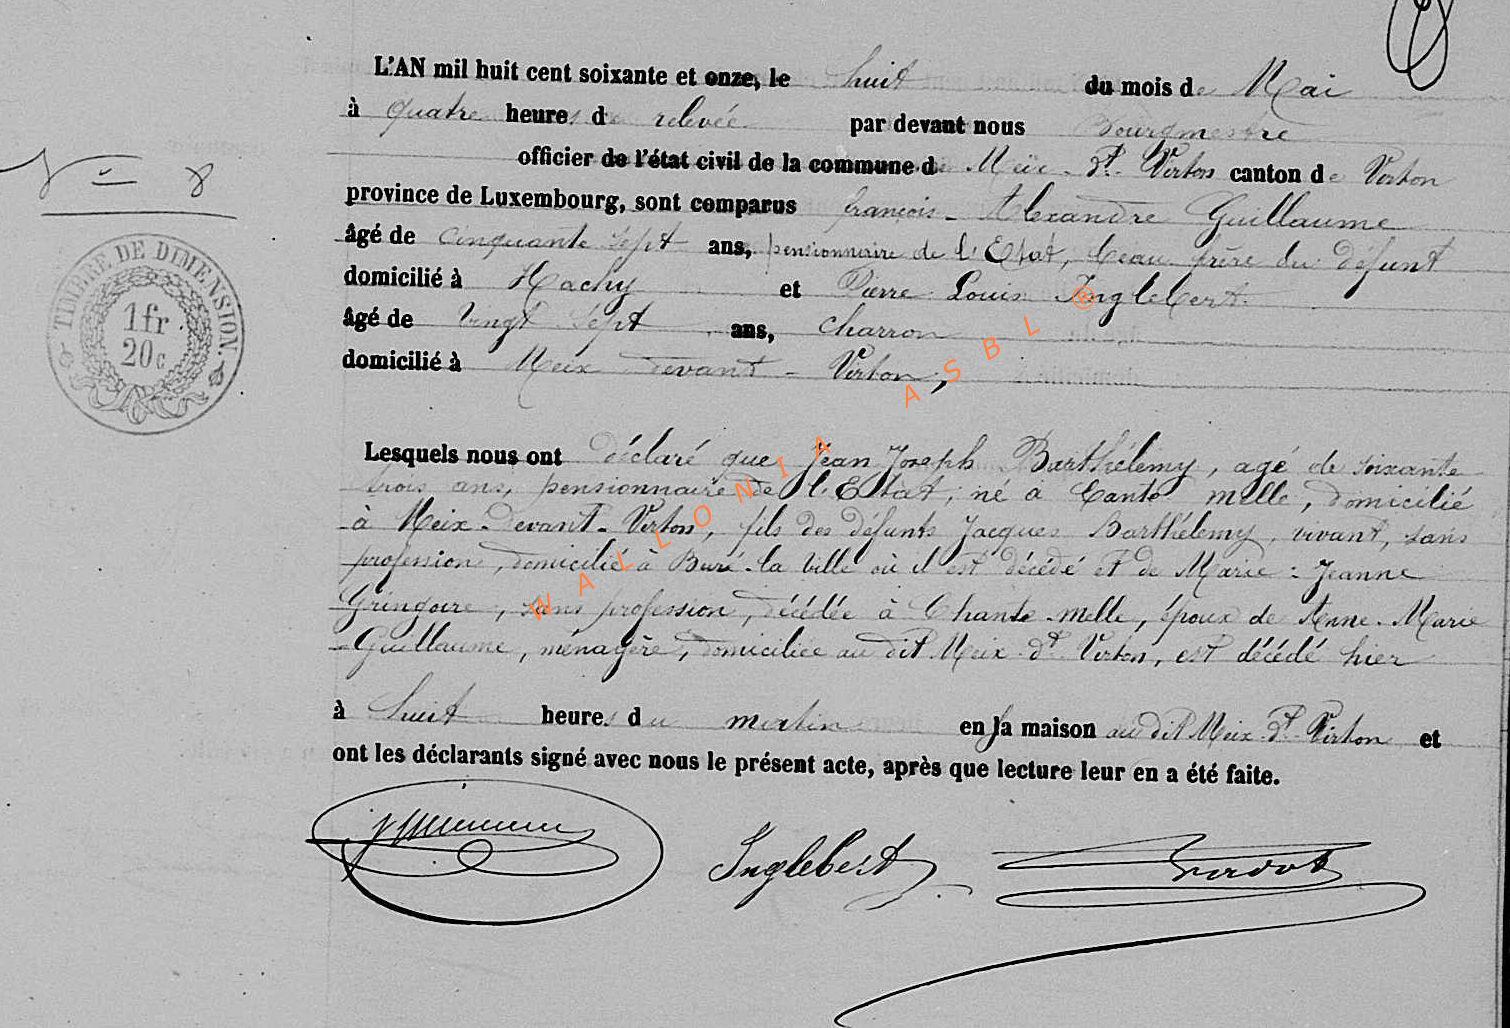 L'AN mil huit cent soixante et onze, le huit du mois de Mai
à quatre heures de relevée par devant nous Bourgmestre
officier de l'état civil de la commune de Meix-dt-Virton canton de Virton
province de Luxembourg, sont comparus françois-Alexandre Guillaume
âgé de cinquante sept ans, pensionnaire de l'Etat, beau frère du défunt
domicilié à Hachy et Pierre Louis Inglebert
âgé de vingt sept ans, charron
domicilié à Meix devant-Virton,
N° 8
TIMBRE DE DIMENSION.
1fr
20c
Lesquels nous ont déclaré que Jean Joseph Barthélemy, agé de soixante
trois ans, pensionnaire de l'Etat, né à Chante melle, domicilié
à Meix-Devant-Virton, fils des défunts Jacques Barthélemy, vivant, sans
profession, domicilié à Buré-la ville où il est décédé et de Marie-Jeanne
Gringoire, sans profession, décédée à Chante-melle, époux de Anne-Marie
Guillaume, ménagère, domiciliée au dit Meix-dt-Virton, est décédé hier
à huit heures du matin en sa maison au dit Meix-dt-Virton et
ont les déclarants signé avec nous le présent acte, après que lecture leur en a été faite.
Inglebert
WALLONIA ASBL ®